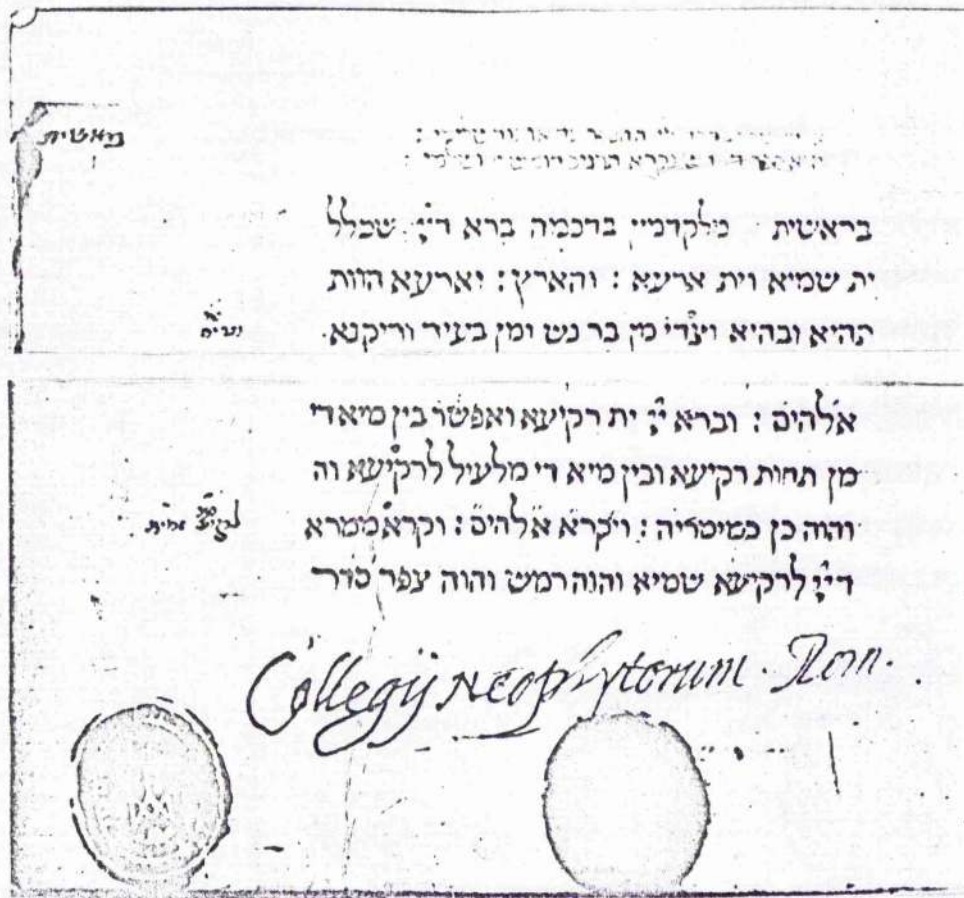 בראשית
בראשית מלקדמין בחכמה ברא דייי שכלל
ית שמיא וית ארעא : והארץ : וארעא הוות
תהיא ובהיא וצדי מן בר נש ומן בעיר וריקנא
אלהים : וברא ייי ית רקיעא ואפשר בין מיא די
מן תחות רקיעא ובין מיא די מלעיל לרקיעא וה
והוה כן כמימריה : ויקרא אלהים : וקרא ממרא
דייי לרקיעא שמיא והוה רמש והוה צפר סדר
Collegij Neophytorum. Rom.